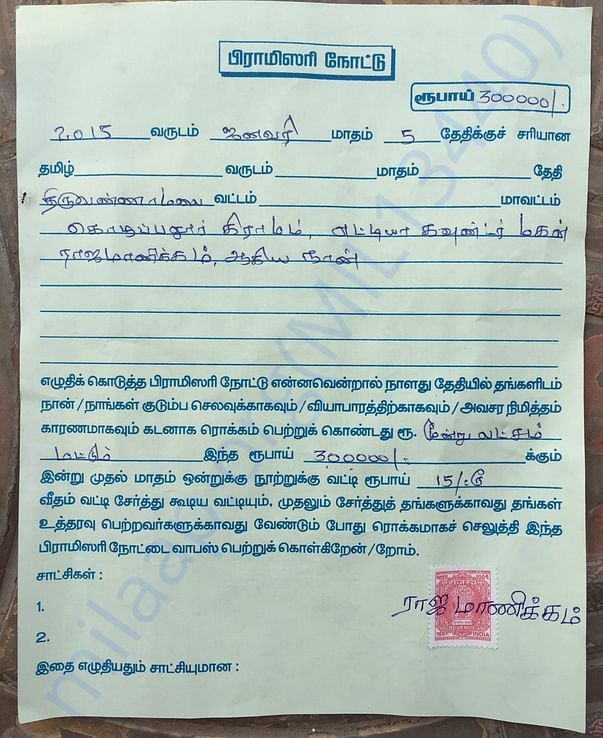 பிராமிஸரி நோட்டு
ரூபாய் 300000/-
2015 வருடம் ஜனவரி மாதம் 5 தேதிக்குச் சரியான
தமிழ் வருடம் மாதம் தேதி
திருவண்ணாமலை வட்டம் மாவட்டம்
கிராமம், எட்டியா கவுண்டர் மகன்
ராஜமாணிக்கம், ஆகிய நான்
எழுதிக் கொடுத்த பிராமிஸரி நோட்டு என்னவென்றால் நாளது தேதியில் தங்களிடம்
நான்/நாங்கள் குடும்ப செலவுக்காகவும்/வியாபாரத்திற்காகவும்/அவசர நிமித்தம்
காரணமாகவும் கடனாக ரொக்கம் பெற்றுக் கொண்டது ரூ. மூன்று லட்சம்
மட்டும் இந்த ரூபாய் 300000/- க்கும்
இன்று முதல் மாதம் ஒன்றுக்கு நூற்றுக்கு வட்டி ரூபாய் 15/-
வீதம் வட்டி சேர்த்து கூடிய வட்டியும், முதலும் சேர்த்துத் தங்களுக்காவது தங்கள்
உத்தரவு பெற்றவர்களுக்காவது வேண்டும் போது ரொக்கமாகச் செலுத்தி இந்த
பிராமிஸரி நோட்டை வாபஸ் பெற்றுக் கொள்கிறேன்/றோம்.
சாட்சிகள் :
ராஜமாணிக்கம்
1.
2.
REVENUE
INDIA
இதை எழுதியதும் சாட்சியுமான :
milaap
(MIL13440)